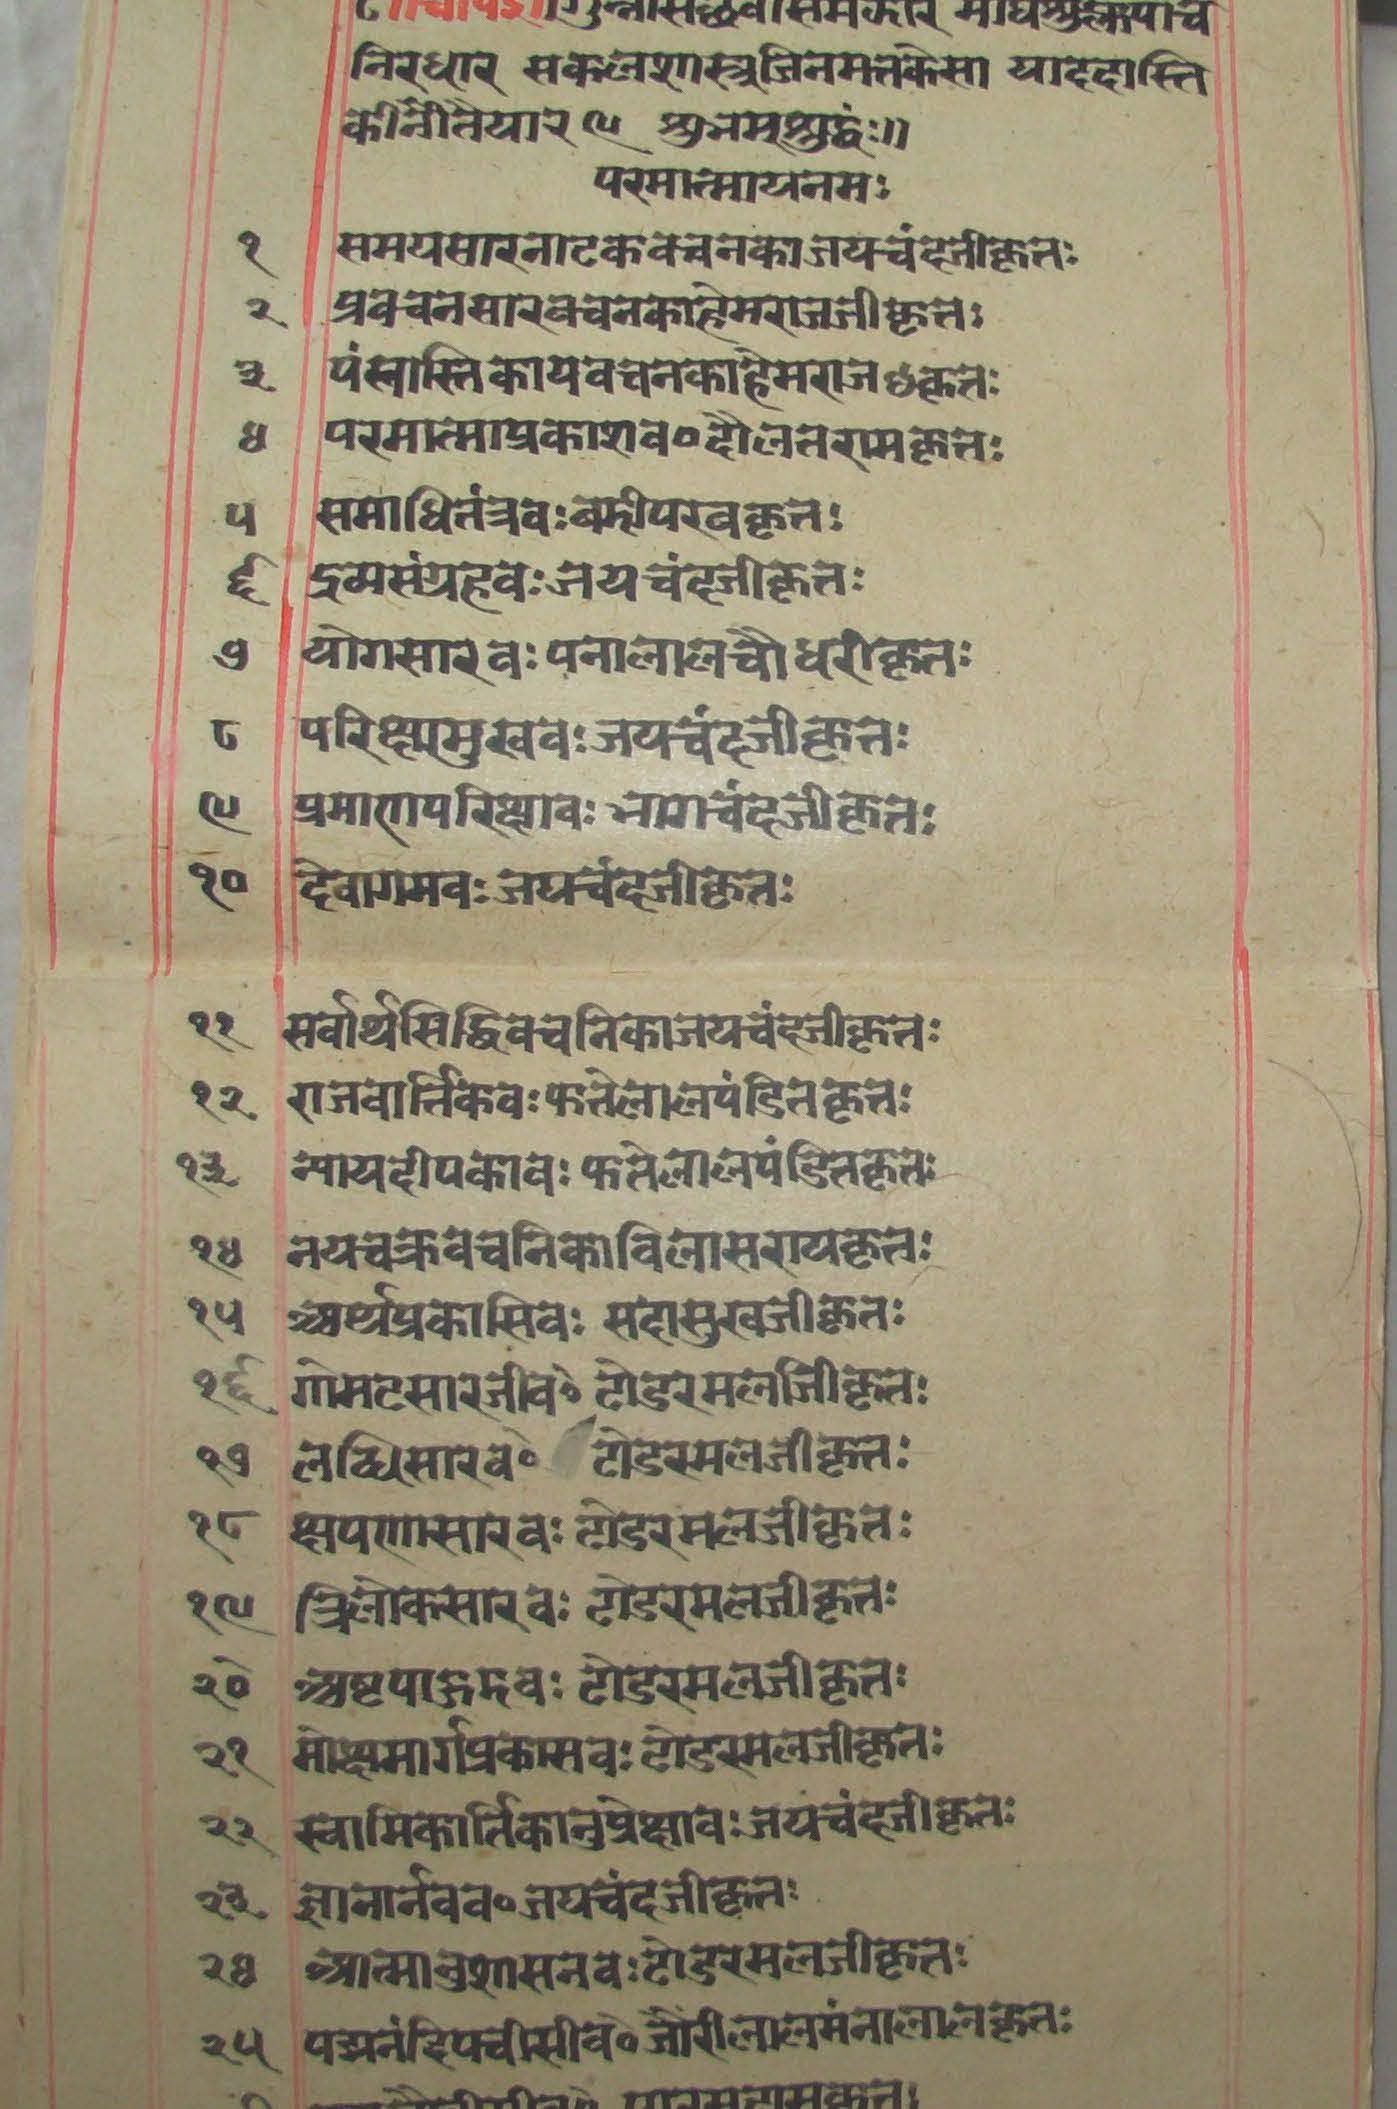 गुन्नीसछवीसमंकार माघशुक्लपांच
निरधार सकलशास्त्रजिनमतकेसा यादहास्ति
कीनीतैयार ९ शुभमशुद्धंः॥
परमात्मायनमः
१ समयसारनाटकवचनकाजयचंदजीकृतः
२ प्रवचनसारवचनकाहेमराजजीकृतः
३ पंचास्तिकायवचनकाहेमराजकृतः
४ परमात्माप्रकाशव॰दौलतरामकृतः
५ समाधितंत्रवः कृतः
६ द्रव्यसंग्रहवः जयचंदजीकृतः
७ योगसारवः पनालालचौधरीकृतः
८ परिक्षामुखवः जयचंदजीकृतः
९ प्रमाणपरिक्षावः भागचंदजीकृतः
१० देवागमवः जयचंदजीकृतः
११ सर्वार्थसिद्धिवचनिकाजयचंदजीकृतः
१२ राजवार्त्तिकवः फतेलालपंडितकृतः
१३ न्यायदीपकावः फतेलालपंडितकृतः
१४ नयचक्रवचनिकाविलासरायकृतः
१५ अर्थप्रकासिवः सदासुखजीकृतः
१६ गोमटसारजीव॰ टोडरमलजीकृतः
१७ लब्धिसारव॰ टोडरमलजीकृतः
१८ क्षपणासारवः टोडरमलजीकृतः
१९ त्रिलोकसारवः टोडरमलजीकृतः
२० अष्टपाहुडवः टोडरमलजीकृतः
२१ मोक्षमार्गप्रकासवः टोडरमलजीकृतः
२२ स्वामिकार्तिकानुप्रेक्षावः जयचंदजीकृतः
२३ ज्ञानार्नवव॰ जयचंदजीकृतः
२४ आत्मानुशासनवः टोडरमलजीकृतः
२५ पद्मनंदिपचीसीव॰ जौरीलालमंनालालकृतः